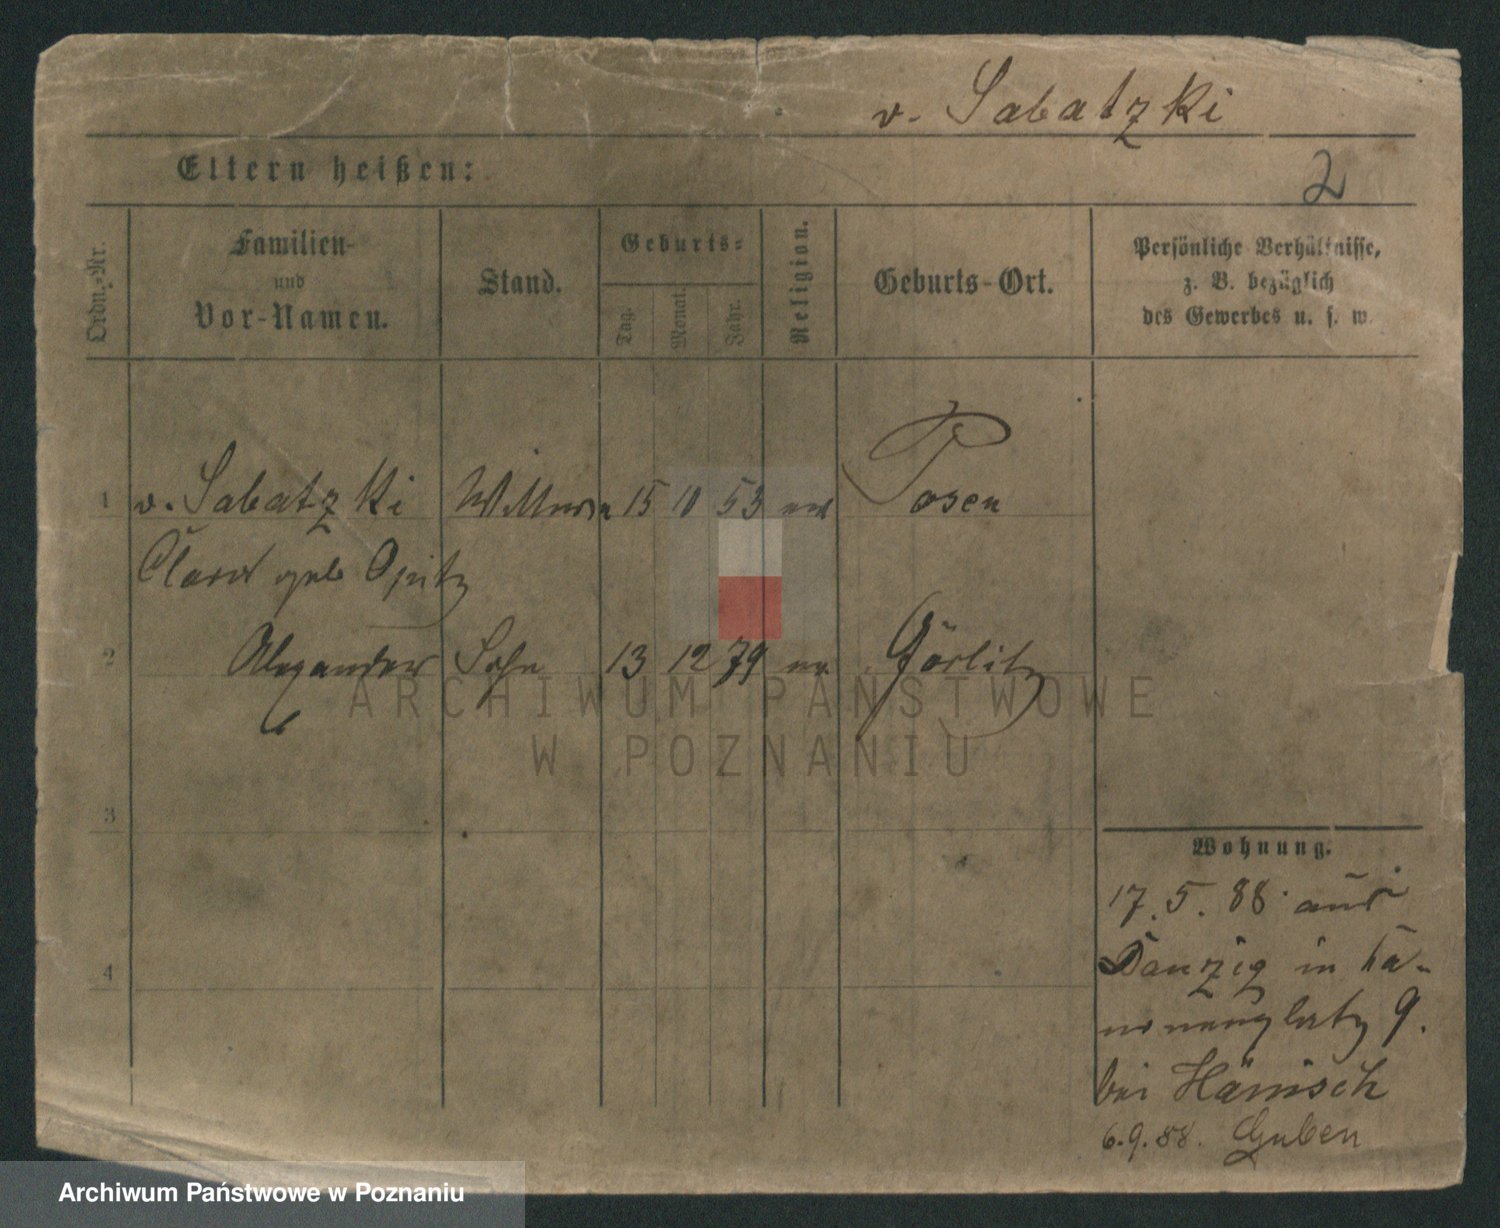 v. Sabatzki
Eltern heißen:
2
Ordn.-Nr.
Familien-
und
Vor-Namen.
Stand.
Geburts-
Tag. Monat. Jahr.
Religion.
Geburts-Ort.
Persönliche Verhältnisse,
z. B. bezüglich
des Gewerbes u. s. w.
1 v. Sabatzki 15 10 53 Posen
Clara geb Opitz
2 Alexander Sohn 13 12 79 Görlitz
ARCHIWUM PAŃSTWOWE
W POZNANIU
3
4
Wohnung.
17.5.88. aus
Danzig in Ka-
nonenplatz 9.
bei Hänisch
6.9.88. Guben
Archiwum Państwowe w Poznaniu